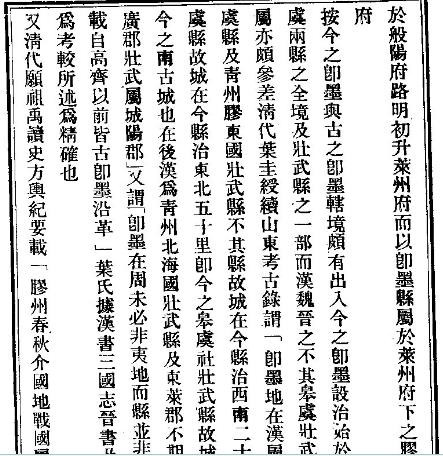 於般陽府路明初升萊州府而以卽墨縣屬於萊州府下之膠
府
按今之卽墨與古之卽墨轄境頗有出入今之卽墨設治始於
虞兩縣之全境及壯武縣之一部而漢魏晉之不其皋虞壯武
屬亦頗參差清代葉圭綬續山東考古錄謂「卽墨地在漢屬
虞縣及青州膠東國壯武縣不其縣故城在今縣治西南二十
虞縣故城在今縣治東北五十里卽今之皋虞社壯武縣故城
今之南古城也在後漢爲青州北海國壯武縣及東萊郡不期
廣郡壯武屬城陽郡」又謂「卽墨在周未必非夷地而縣並非
載自高齊以前皆古卽墨沿革」葉氏據漢書三國志晉書
爲考較所述爲精確也
又清代顧祖禹讀史方輿紀要載「膠州春秋介國地戰國